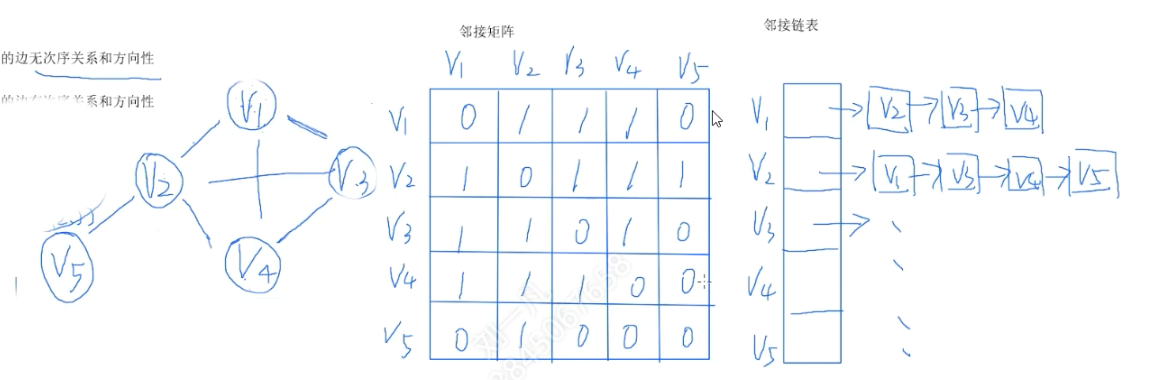 的边无次序关系和方向性
的边有次序关系和方向性
V1
V2
V3
V4
V5
邻接矩阵
V1 V2 V3 V4 V5
V1 0 1 1 1 0
V2 1 0 1 1 1
V3 1 1 0 1 0
V4 1 1 1 0 0
V5 0 1 0 0 0
邻接链表
V1 V2 V3 V4
V2 V1 V3 V4 V5
V3
V4
V5